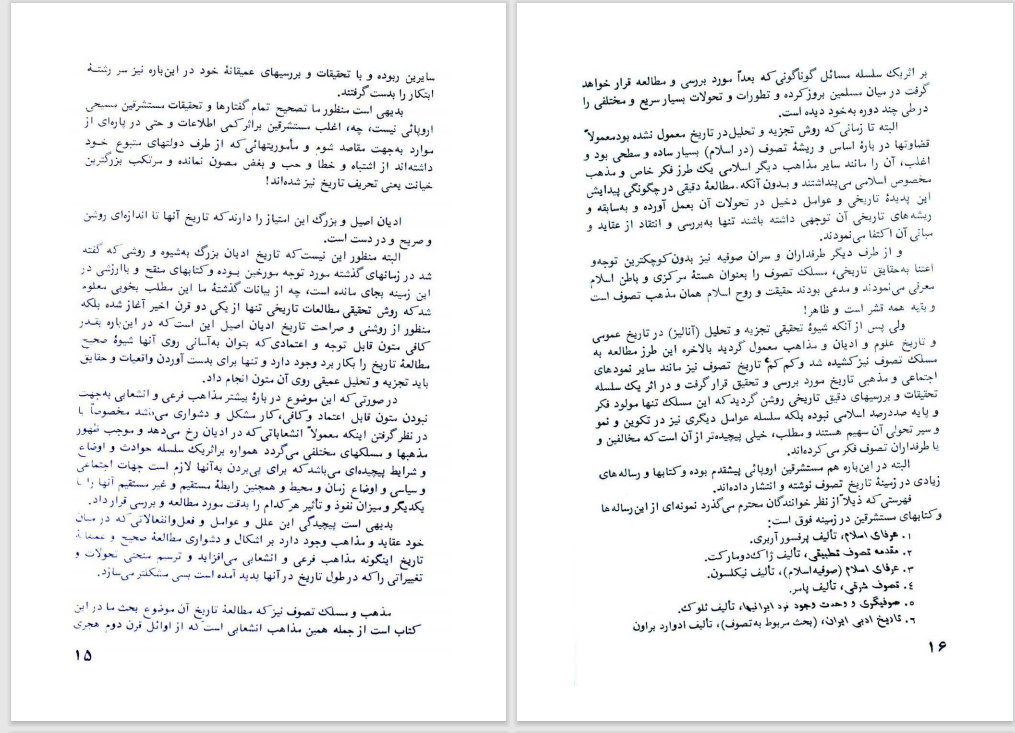 سایرین ربوده و با تحقیقات و بررسیهای عمیقانهٔ خود در این‌باره نیز سر رشتهٔ
ابتکار را بدست گرفتند.
بدیهی است منظور ما تصحیح تمام گفتارها و تحقیقات مستشرقین مسیحی
اروپائی نیست، چه، اغلب مستشرقین براثر کمی اطلاعات و حتی در پاره‌ای از
موارد به‌جهت مقاصد شوم و مأموریتهائی که از طرف دولتهای متبوع خود
داشته‌اند از اشتباه و خطا و حب و بغض مصون نمانده و مرتکب بزرگترین
خیانت یعنی تحریف تاریخ نیز شده‌اند!
ادیان اصیل و بزرگ این امتیاز را دارند که تاریخ آنها تا اندازه‌ای روشن
و صریح و در دست است.
البته منظور این نیست که تاریخ ادیان بزرگ به‌شیوه و روشی که گفته
شد در زمانهای گذشته مورد توجه مورخین بوده و کتابهای منقح و باارزشی در
این زمینه بجای مانده است، چه از بیانات گذشتهٔ ما این مطلب بخوبی معلوم
شد که روش تحقیقی مطالعات تاریخی تنها از یکی دو قرن اخیر آغاز شده بلکه
منظور از روشنی و صراحت تاریخ ادیان اصیل این است که در این‌باره بقدر
کافی متون قابل توجه و اعتمادی که بتوان به‌آسانی روی آنها شیوهٔ صحیح
مطالعهٔ تاریخ را بکار برد وجود دارد و تنها برای بدست آوردن واقعیات و حقایق
باید تجزیه و تحلیل عمیقی روی آن متون انجام داد.
در صورتی که این موضوع در بارهٔ بیشتر مذاهب فرعی و انشعابی به‌جهت
نبودن متون قابل اعتماد و کافی، کار مشکل و دشواری می‌باشد مخصوصاً با
در نظر گرفتن اینکه معمولاً انشعاباتی که در ادیان رخ می‌دهد و موجب ظهور
مذهبها و مسلکهای مختلفی می‌گردد همواره براثر یک سلسله حوادث و اوضاع
و شرایط پیچیده‌ای می‌باشد که برای پی‌بردن به‌آنها لازم است جهات اجتماعی
و سیاسی و اوضاع زمان و محیط و همچنین رابطهٔ مستقیم و غیر مستقیم آنها را با
یکدیگر و میزان نفوذ و تأثیر هر کدام را بدقت مورد مطالعه و بررسی قرار داد.
بدیهی است پیچیدگی این علل و عوامل و فعل‌وانفعالاتی که در میان
خود عقاید و مذاهب وجود دارد بر اشکال و دشواری مطالعهٔ صحیح و عمیقانهٔ
تاریخ اینگونه مذاهب فرعی و انشعابی می‌افزاید و ترسیم منحنی تحولات و
تغییراتی را که در طول تاریخ در آنها پدید آمده است بسی مشکلتر می‌سازد.
مذهب و مسلک تصوف نیز که مطالعهٔ تاریخ آن موضوع بحث ما در این
کتاب است از جمله همین مذاهب انشعابی است که از اوائل قرن دوم هجری
۱۵
بر اثر یک سلسله مسائل گوناگونی که بعداً مورد بررسی و مطالعه قرار خواهد
گرفت در میان مسلمین بروز کرده و تطورات و تحولات بسیار سریع و مختلفی را
در طی چند دوره به‌خود دیده است.
البته تا زمانی که روش تجزیه و تحلیل در تاریخ معمول نشده بود معمولاً
قضاوتها در بارهٔ اساس و ریشهٔ تصوف (در اسلام) بسیار ساده و سطحی بود و
اغلب، آن را مانند سایر مذاهب دیگر اسلامی یک طرز فکر خاص و مذهب
مخصوص اسلامی می‌پنداشتند و بدون آنکه مطالعهٔ دقیقی در چگونگی پیدایش
این پدیدهٔ تاریخی و عوامل دخیل در تحولات آن بعمل آورده و به‌سابقه و
ریشه‌های تاریخی آن توجهی داشته باشند تنها به‌بررسی و انتقاد از عقاید و
مبانی آن اکتفا می‌نمودند.
و از طرف دیگر طرفداران و سران صوفیه نیز بدون کوچکترین توجه و
اعتنا به‌حقایق تاریخی، مسلک تصوف را بعنوان هستهٔ مرکزی و باطن اسلام
معرفی می‌نمودند و مدعی بودند حقیقت و روح اسلام همان مذهب تصوف است
و بقیه همه قشر است و ظاهر!
ولی پس از آنکه شیوهٔ تحقیقی تجزیه و تحلیل (آنالیز) در تاریخ عمومی
و تاریخ علوم و ادیان و مذاهب معمول گردید بالاخره این طرز مطالعه به
مسلک تصوف نیز کشیده شد و کم کم تاریخ تصوف نیز مانند سایر نمودهای
اجتماعی و مذهبی تاریخ مورد بررسی و تحقیق قرار گرفت و در اثر یک سلسله
تحقیقات و بررسیهای دقیق تاریخی روشن گردید که این مسلک تنها مولود فکر
و پایه صددرصد اسلامی نبوده بلکه سلسله عوامل دیگری نیز در تکوین و نمو
و سیر تحولی آن سهیم هستند و مطلب، خیلی پیچیده‌تر از آن است که مخالفین و
یا طرفداران تصوف فکر می‌کرده‌اند.
البته در این‌باره هم مستشرقین اروپائی پیشقدم بوده و کتابها و رساله‌های
زیادی در زمینهٔ تاریخ تصوف نوشته و انتشار داده‌اند.
فهرستی که ذیلاً از نظر خوانندگان محترم می‌گذرد نمونه‌ای از این رساله‌ها
و کتابهای مستشرقین در زمینه فوق است:
۱. عرفای اسلام، تألیف پرفسور آربری.
۲. مقدمه تصوف تطبیقی، تألیف ژاک دومارکت.
۳. عرفای اسلام (صوفیه اسلام)، تألیف نیکلسون.
۴. تصوف شرقی، تألیف پامر.
۵. صوفیگری و وحدت وجود نزد ایرانیها، تألیف ثلوک.
۶. تاریخ ادبی ایران، (بحث مربوط به تصوف)، تألیف ادوارد براون
۱۶